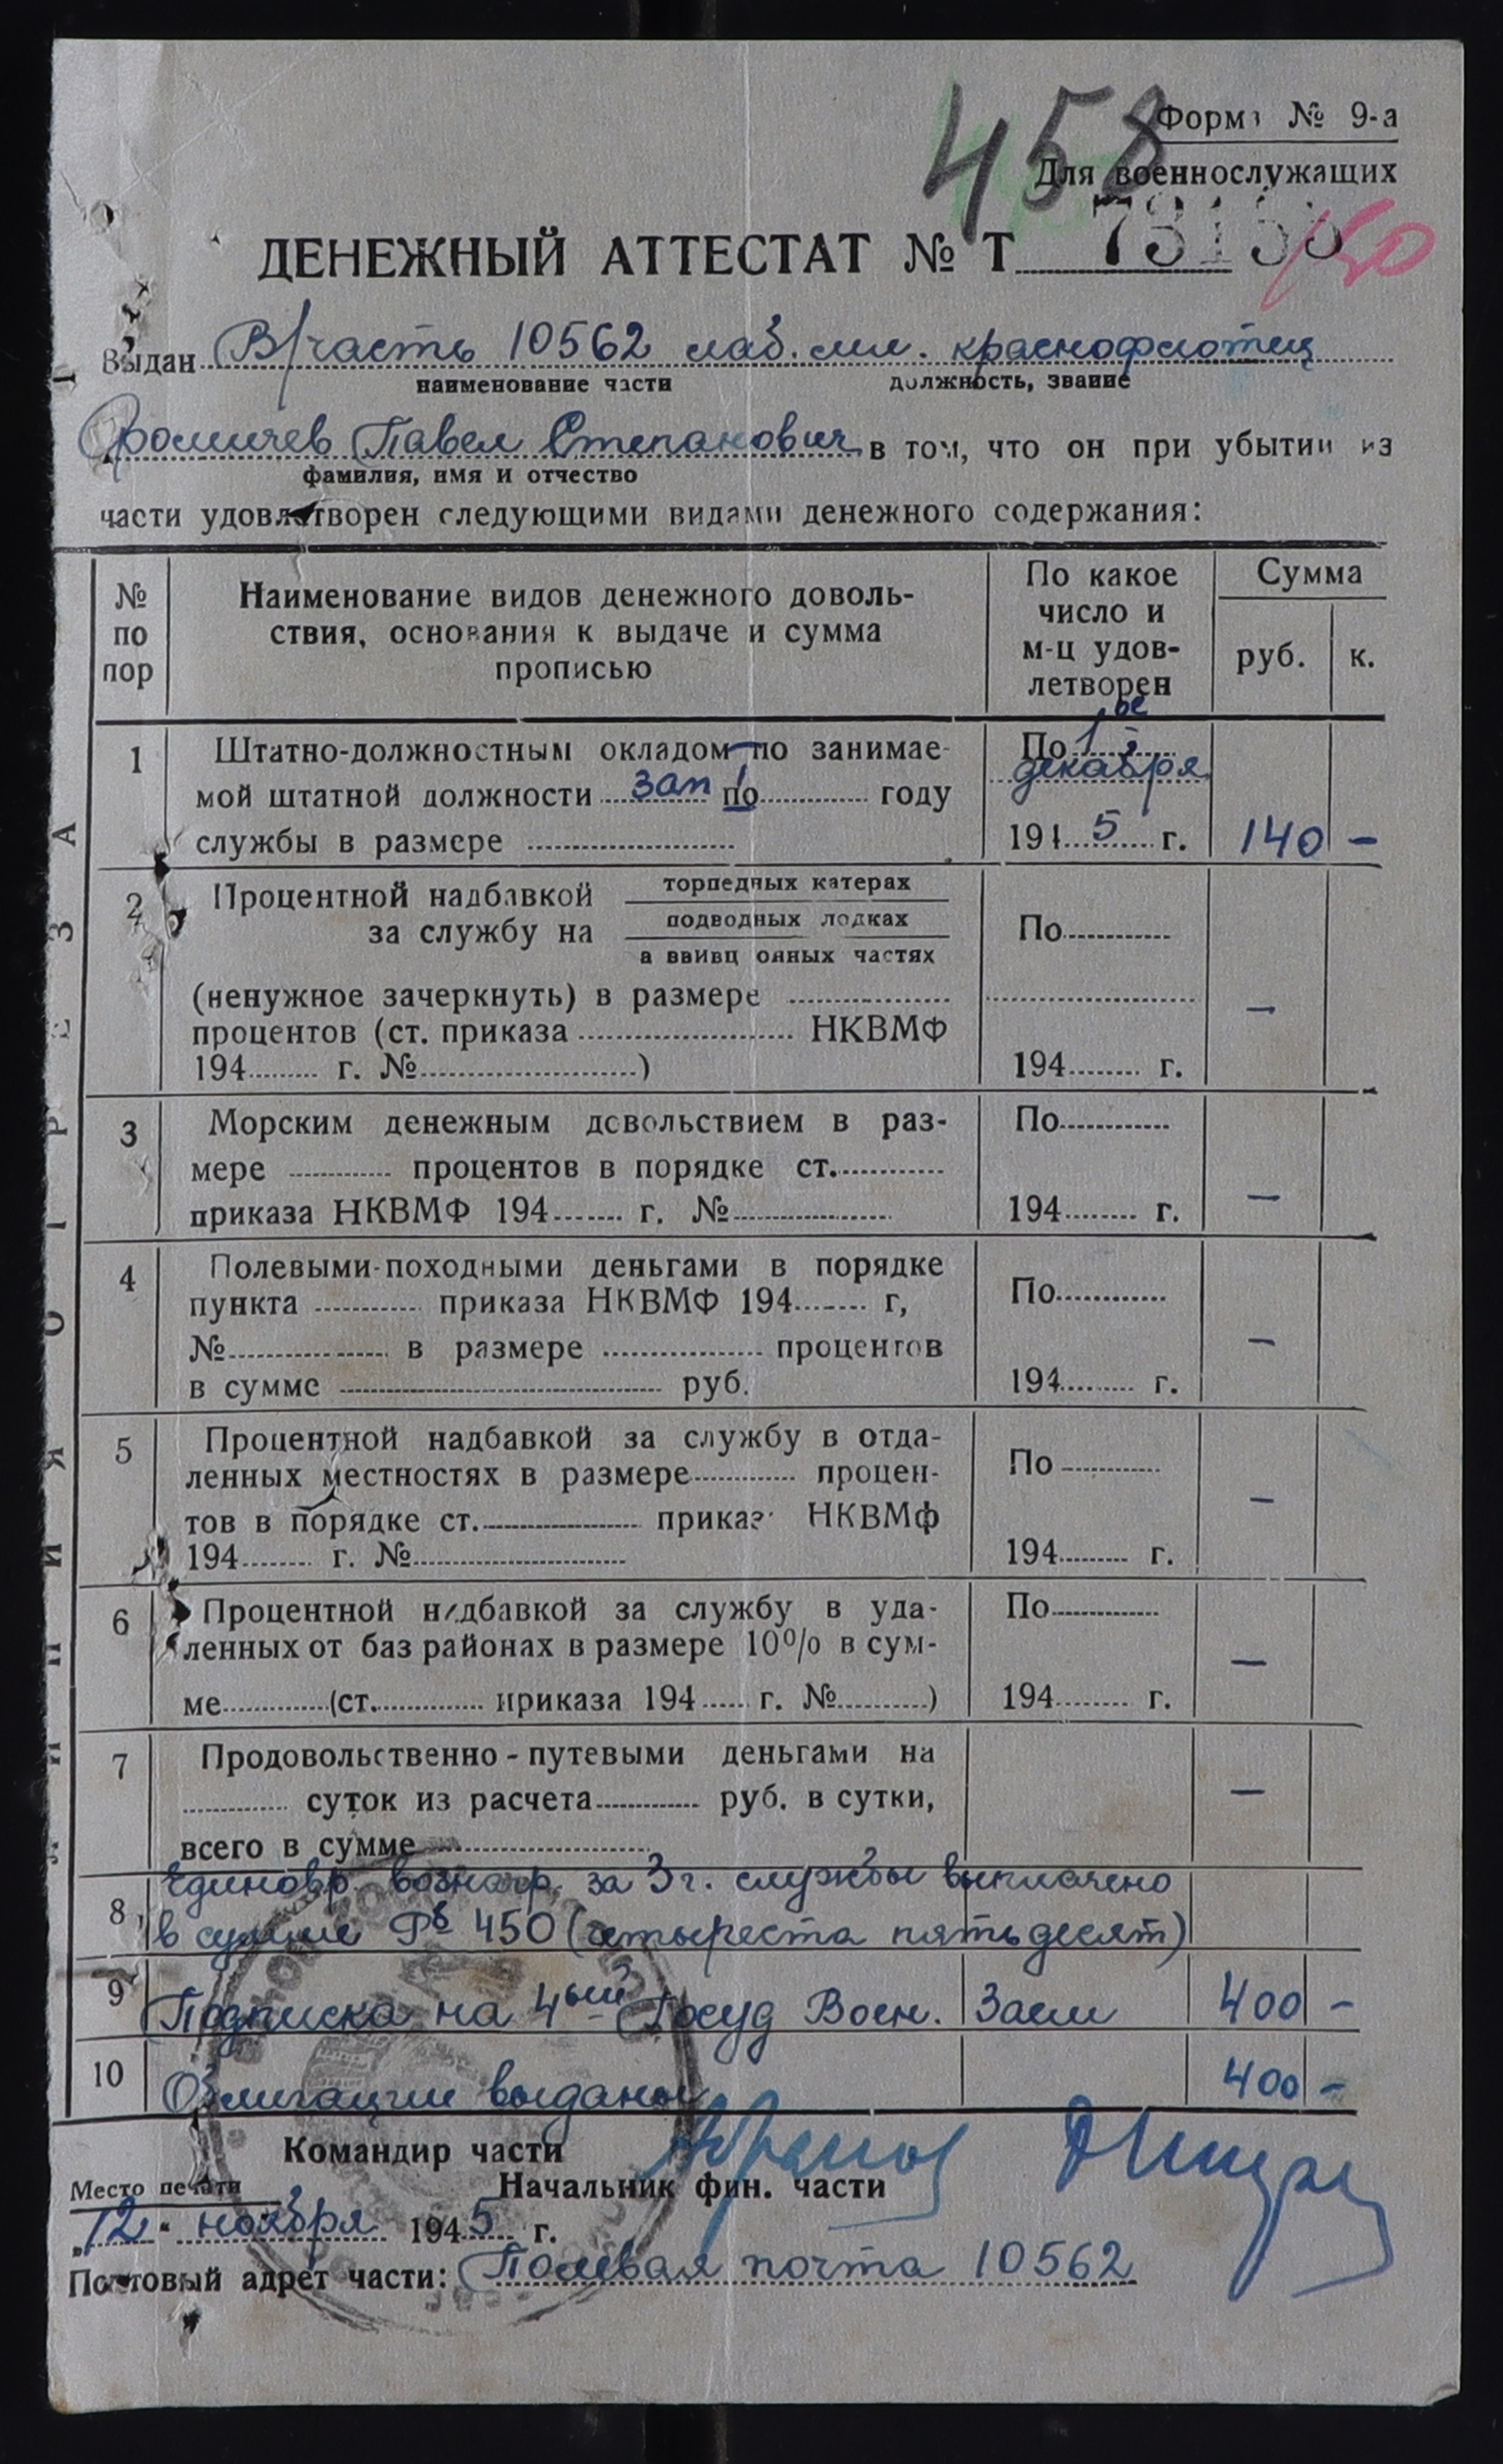 458
Форма № 9-а
Для военнослужащих
ДЕНЕЖНЫЙ АТТЕСТАТ № Т 73155
50
Выдан В/часть 10562 лаб. мл. краснофлотец
наименование части должность, звание
Фомичев Павел Степанович в том, что он при убытии из
фамилия, имя и отчество
части удовлетворен следующими видами денежного содержания:
№ по пор
Наименование видов денежного доволь-
ствия, основания к выдаче и сумма
прописью
По какое
число и
м-ц удов-
летворен
Сумма
руб. к.
1 Штатно-должностным окладом по занимае-
мой штатной должности зап по году
службы в размере
По 1 ое
декабря
194 5 г. 140 -
2 Процентной надбавкой
за службу на
торпедных катерах
подводных лодках
а ввивц онных частях
(ненужное зачеркнуть) в размере
процентов (ст. приказа НКВМФ
194 г. № )
По
194 г. —
3 Морским денежным довольствием в раз-
мере процентов в порядке ст.
приказа НКВМФ 194 г. №
По
194 г. —
4 Полевыми-походными деньгами в порядке
пункта приказа НКВМФ 194 г,
№ в размере процентов
в сумме руб.
По
194 г. —
5 Процентной надбавкой за службу в отда-
ленных местностях в размере процен-
тов в порядке ст. приказ НКВМФ
194 г. №
По
194 г. —
6 Процентной надбавкой за службу в уда-
ленных от баз районах в размере 10% в сум-
ме (ст. приказа 194 г. № )
По
194 г. —
7 Продовольственно-путевыми деньгами на
суток из расчета руб. в сутки,
всего в сумме
—
8 Единовр. вознагр. за 3 г. службы выплачено
в сумме Рб 450 (четыреста пятьдесят)
9 Подписка на 4ый Госуд Воен. Заем 400 -
10 Облигации выданы 400 -
Командир части
Место печати Начальник фин. части
„12“ ноября 1945 г.
Почтовый адрет части: Полевая почта 10562
ЛИНИЯ ОТРЕЗА